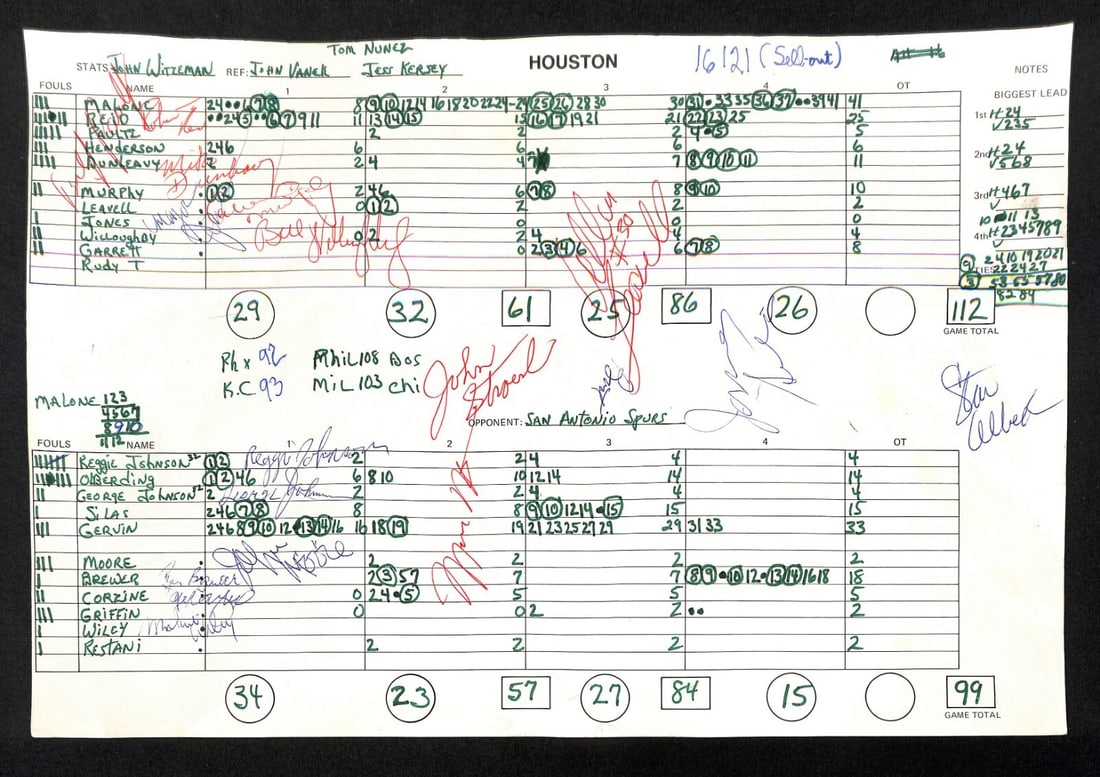 TOM NUNEZ
STATS: JOHN WITZEMAN REF: JOHN VANEK JESS KERSEY HOUSTON 16121 (Sell-out)
NOTES
FOULS NAME 1 2 3 4 OT
BIGGEST LEAD
MALONE 24 • • 6 7 8 8 9 10 12 14 16 18 20 22 24 - 24 25 26 28 30 30 31 • 33 35 36 37 • • 39 41 41
REID • • 2 4 5 • • 6 7 9 11 11 13 14 15 15 16 17 19 21 21 22 23 25 25
PAULTZ 2 2 2 4 • 5 5
HENDERSON 2 4 6 6 6 6 6
DUNLEAVY 2 2 4 4 7 7 8 9 10 11 11
MURPHY 1 2 2 4 6 6 7 8 8 9 10 10
LEAVELL 0 1 2 2 2 2
JONES 0 0 0 0
WILLOUGHBY 0 2 2 4 4 4
GARRETT 0 2 3 4 6 6 7 8 8
RUDY T
1st H 24
✓ 235
2nd H 24
✓ 568
3rd H 467
✓
10 11 13
4th H 2345789
✓
9 2 4 10 19 20 21
TIES 22 24 27
3 53 55 57 80
82 84
29 32 61 25 86 26 112
GAME TOTAL
Phx 92 PHIL 108 BOS
K.C 93 MIL 103 CHI
MALONE 123
4567
8910
11 12
John Stroeder
Stan Albeck
OPPONENT: SAN ANTONIO SPURS
FOULS NAME 1 2 3 4 OT
REGGIE JOHNSON 32 1 2 Reggie Johnson 2 2 4 4 4
OLBERDING 1 2 4 6 6 8 10 10 12 14 14 14
GEORGE JOHNSON 52 2 George Johnson 2 2 4 4 4
SILAS 2 4 6 7 8 8 8 9 10 12 14 • 15 15 15
GERVIN 2 4 6 8 9 10 12 • 13 14 16 16 18 19 19 21 23 25 27 29 29 31 33 33
MOORE 2 2 2 2
BREWER 2 3 5 7 7 7 8 9 • 10 12 • 13 14 16 18 18
CORZINE 0 2 4 • 5 5 5 5
GRIFFIN 0 0 2 2 • • 2
WILEY
RESTANI 2 2 2 2
34 23 57 27 84 15 99
GAME TOTAL